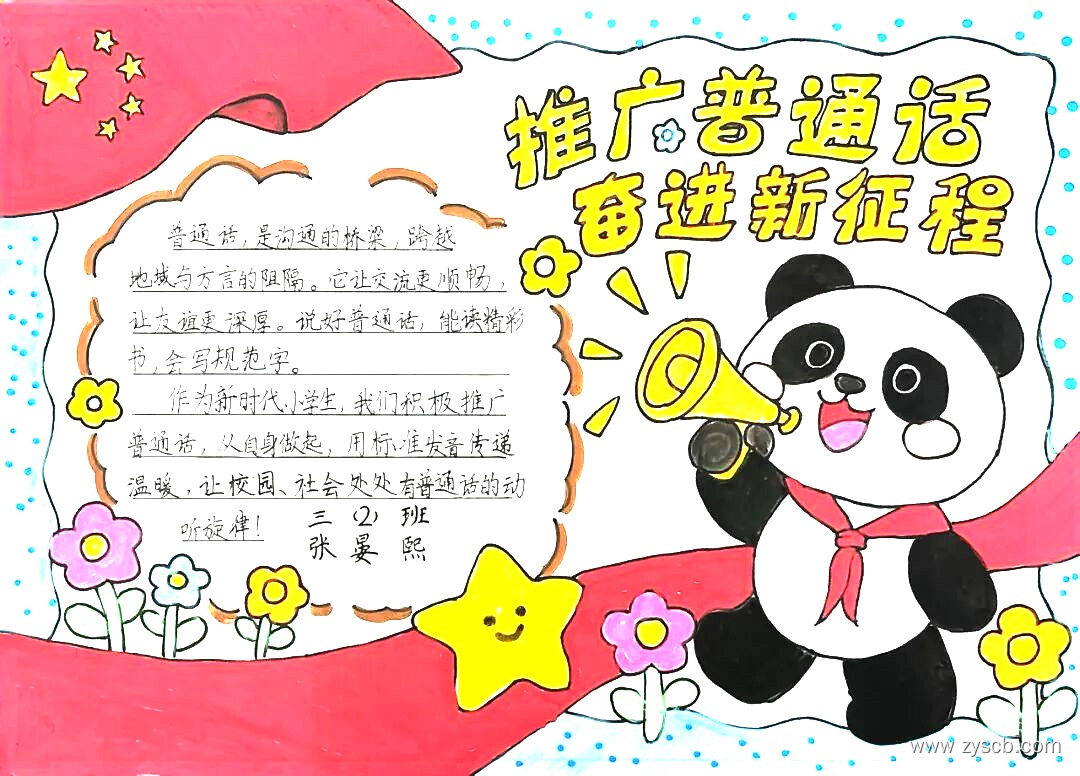 推广普通话
奋进新征程
普通话，是沟通的桥梁，跨越
地域与方言的阻隔。它让交流更顺畅，
让友谊更深厚。说好普通话，能读精彩
书，会写规范字。
作为新时代小学生，我们积极推广
普通话，从自身做起，用标准发音传递
温暖，让校园、社会处处有普通话的动
听旋律！
三（2）班
张晏熙
www.zyscb.com